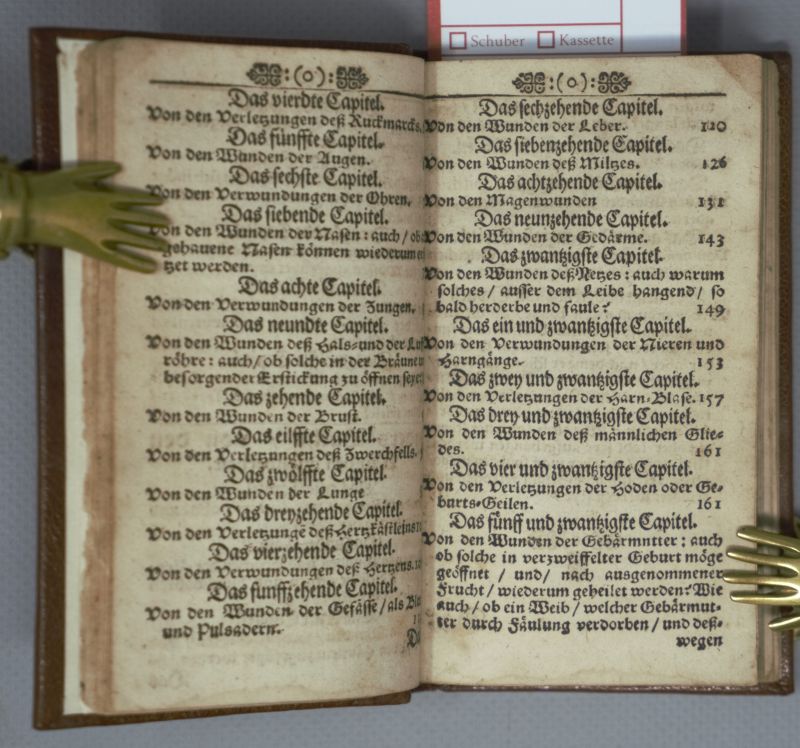 Schuber Kassette
:(o):
Das vierdte Capitel.
Von den Verletzungen deß Ruckmarcks.
Das fünffte Capitel.
Von den Wunden der Augen.
Das sechste Capitel.
Von den Verwundungen der Ohren.
Das siebende Capitel.
Von den Wunden der Nasen: auch / ob
gehauene Nasen können wiederum
tzet werden.
Das achte Capitel.
Von den Verwundungen der Zungen.
Das neundte Capitel.
Von den Wunden deß Hals- und der
röhre: auch / ob solche in der Bräune
besorgender Erstickung zu öffnen
Das zehende Capitel.
Von den Wunden der Brust.
Das eilffte Capitel.
Von den Verletzungen deß Zwerchfells.
Das zwölffte Capitel.
Von den Wunden der Lunge
Das dreyzehende Capitel.
Von den Verletzunge deß Hertzkästleins
Das vierzehende Capitel.
Von den Verwundungen deß Hertzens.
Das funffzehende Capitel.
Von den Wunden der Gefässe / als
und Pulsadern.
:(o):
Das sechzehende Capitel.
Von den Wunden der Leber. 120
Das siebenzehende Capitel.
Von den Wunden deß Miltzes. 126
Das achtzehende Capitel.
Von den Magenwunden 131
Das neunzehende Capitel.
Von den Wunden der Gedärme. 143
Das zwantzigste Capitel.
Von den Wunden deß Netzes: auch warum
solches / ausser dem Leibe hangend / so
bald herderbe und faule? 149
Das ein und zwantzigste Capitel.
Von den Verwundungen der Nieren und
Harngänge. 153
Das zwey und zwantzigste Capitel.
Von den Verletzungen der Harn-Blase. 157
Das drey und zwantzigste Capitel.
Von den Wunden deß männlichen Glie-
des. 161
Das vier und zwantzigste Capitel.
Von den Verletzungen der Hoden oder Ge-
burts-Geilen. 161
Das fünff und zwantzigste Capitel.
Von den Wunden der Gebärmntter: auch
ob solche in verzweiffelter Geburt möge
geöffnet / und / nach ausgenommener
Frucht / wiederum geheilet werden? Wie
auch / ob ein Weib / welcher Gebärmut-
ter durch Fäulung verdorben / und deß-
wegen